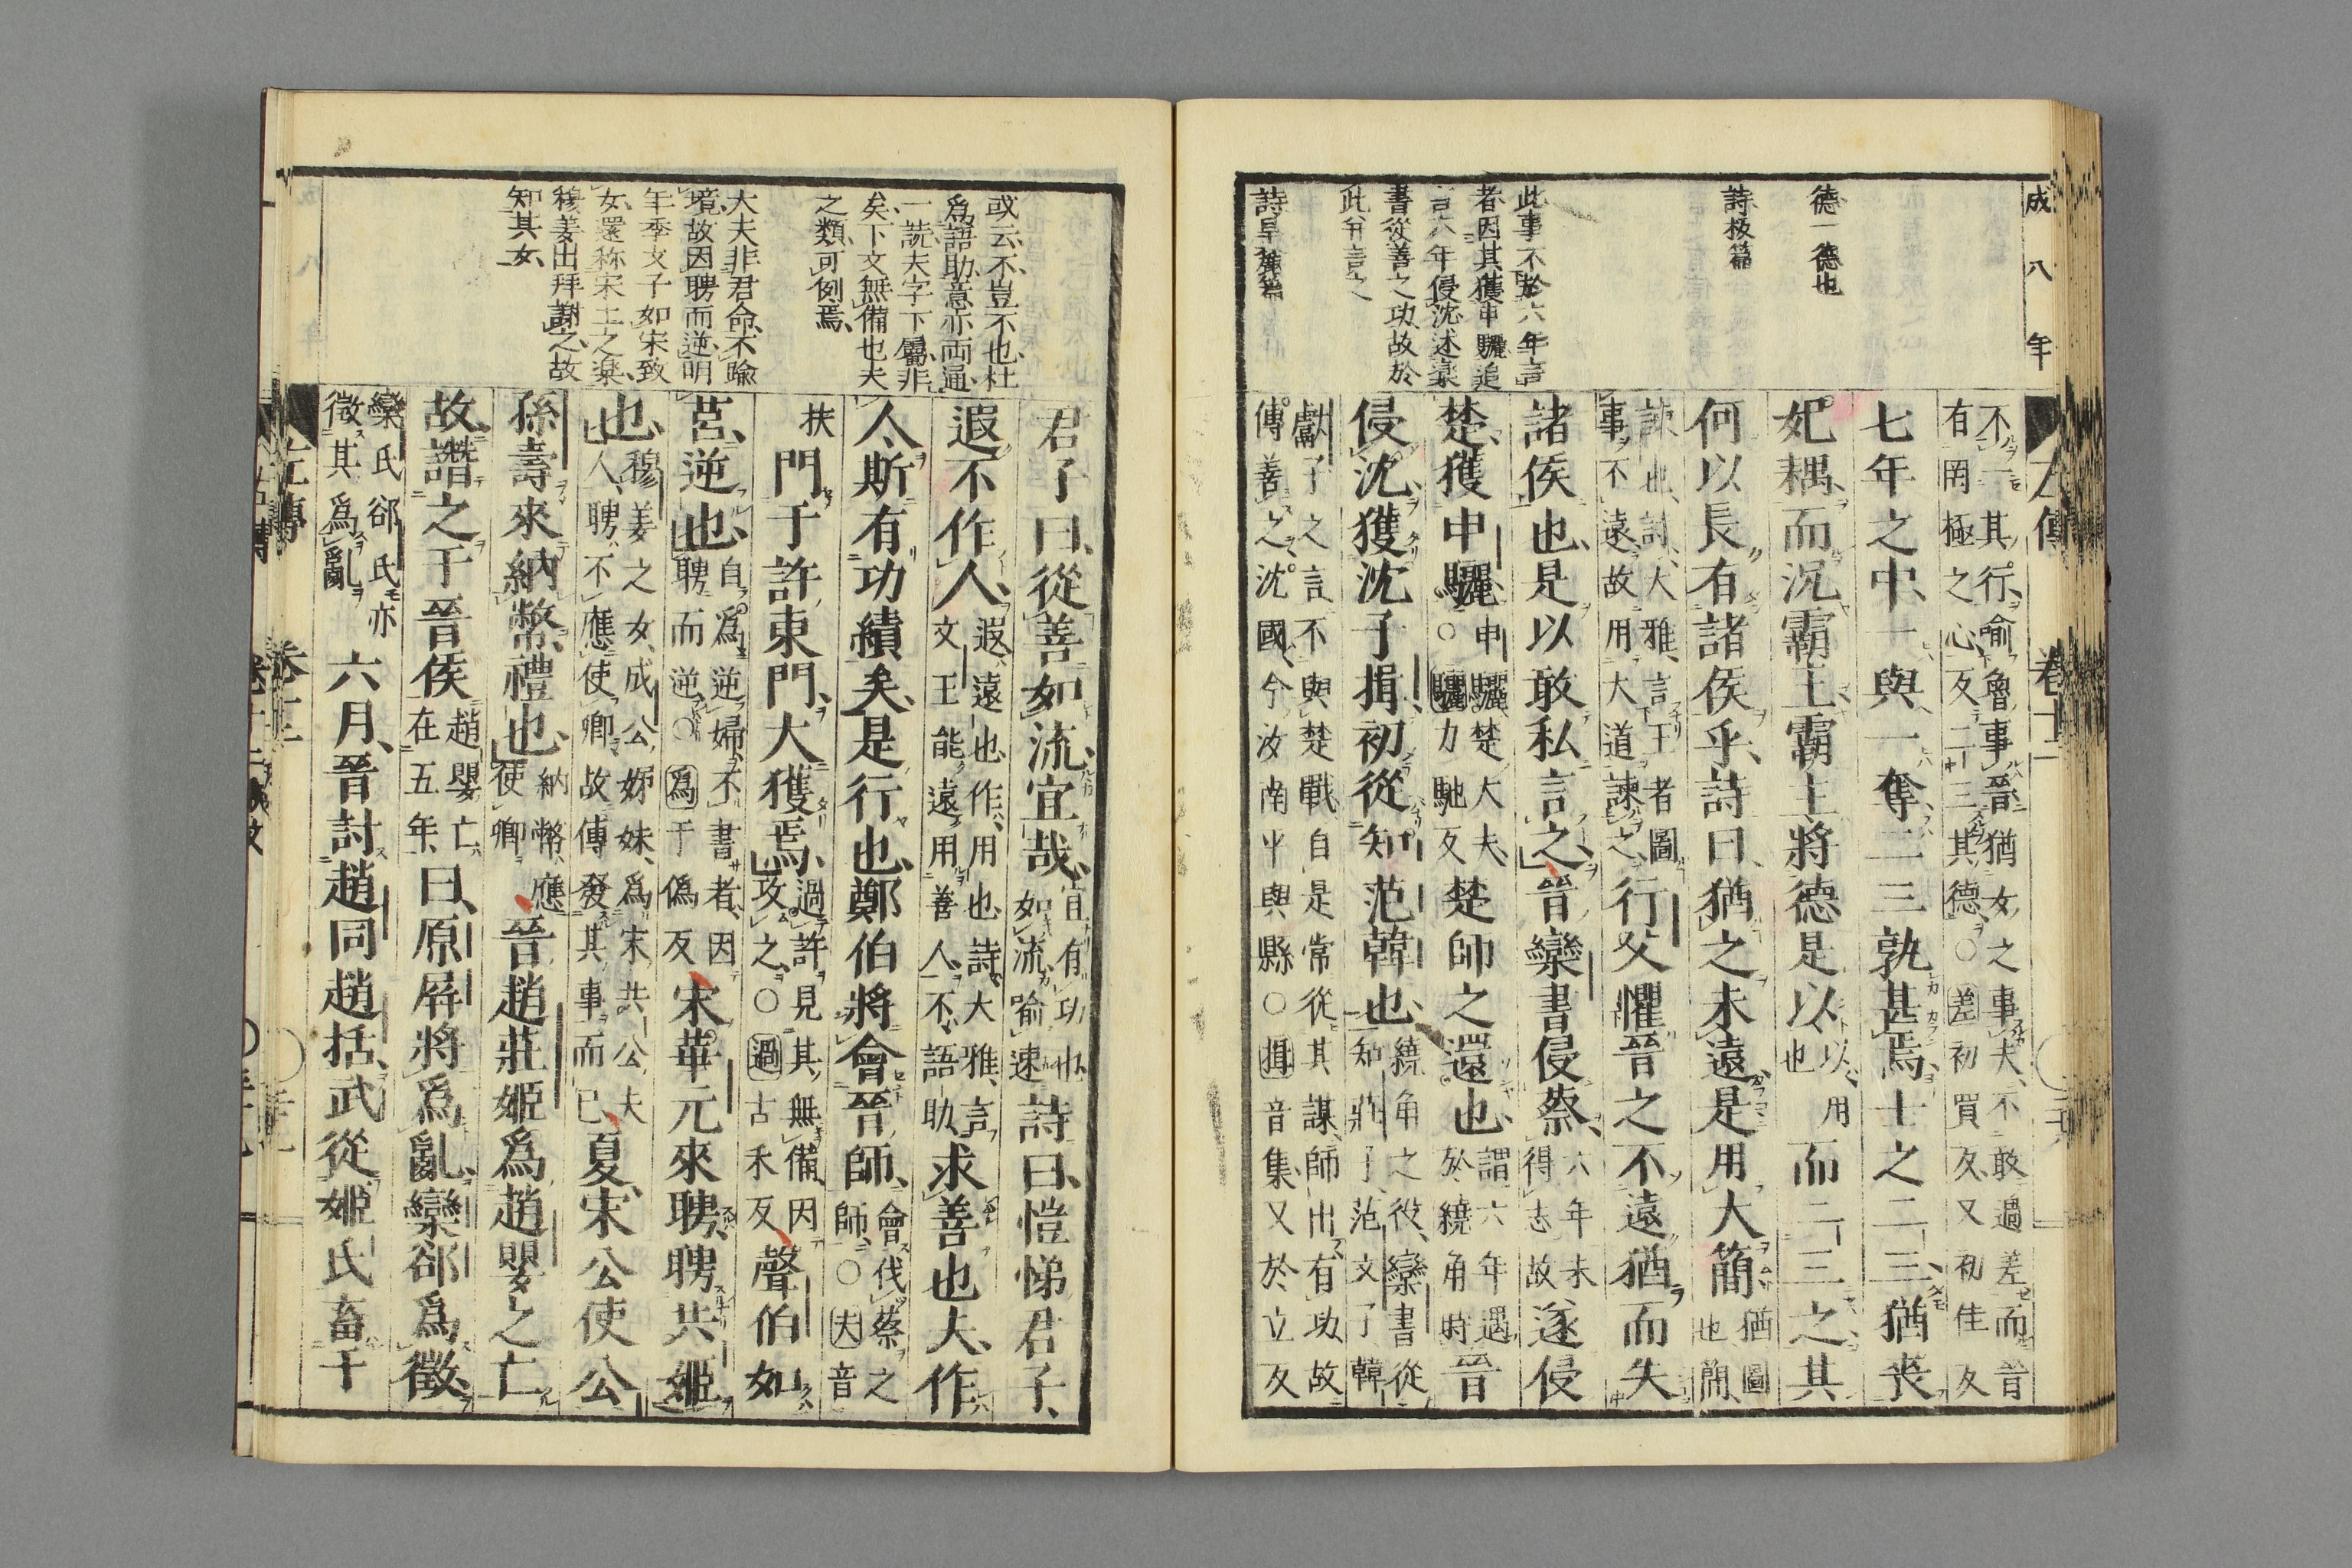 成八年
德一德也
詩板篇
此事不於六年言
者因其獲申驪追
言六年侵沈述欒
書從善之功故於
此并言之
詩旱麓篇
左傳 卷十二
不一其行喻魯事晉猶女之事夫不敢過差而晉
有罔極之心反二三其德○差初買反又初佳反
七年之中一與一奪二三孰甚焉士之二三猶喪
妃耦而況霸主霸主將德是以以用也而二三之其
何以長有諸侯乎詩曰猶之未遠是用大簡猶圖也簡
諫也詩大雅言王者圖事不遠故用大道諫之行父懼晉之不遠猶而失
諸侯也是以敢私言之晉欒書侵蔡六年未得志故遂侵
楚獲申驪申驪楚大夫○驪力馳反楚師之還也謂六年遇於繞角時晉
侵沈獲沈子揖初從知范韓也繞角之役欒書從知莊子范文子韓
獻子之言不與楚戰自是常從其謀師出有功故
傳善之沈國今汝南平輿縣○揖音集又於立反
或云不豈不也杜
爲語助意亦両通
一説夫字下屬非
矣下文無備也夫
之類可例焉
大夫非君命不踰
境故因聘而逆明
年季文子如宋致
女還称宋土之楽
穆姜出拜謝之故
知其女
君子曰從善如流宜哉宜有功也如流喻速詩曰愷悌君子
遐不作人遐遠也作用也詩大雅言文王能遠用善人不語助求善也夫作
人斯有功績矣是行也鄭伯將會晉師會伐蔡之師○夫音
扶門于許東門大獲焉過許見其無備因攻之○過古禾反聲伯如
莒逆也自爲逆婦不書者因聘而逆○爲于僞反宋華元來聘聘共姬
也穆姜之女成公姊妹爲宋共公夫人聘不應使卿故傳發其事而已夏宋公使公
孫壽來納幣禮也納幣應使卿晉趙莊姬爲趙嬰之亡
故譖之于晉侯趙嬰亡在五年曰原屏將爲亂欒郤爲徵
欒氏郤氏亦徵其爲亂六月晉討趙同趙括武從姬氏畜于
左傳 卷十二